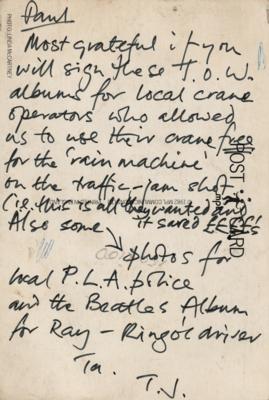 Paul
Most grateful if you
will sign these T.O.W.
albums for local crane
operators who allowed
us to use their crane free
for the 'rain machine'
on the traffic-jam shot
(i.e. this is all they wanted and
it saved £££££
Also some
photos for
local P.L.A. police
and the Beatles Album
for Ray - Ringo's driver
Ta.
T.J.
PHOTO LINDA McCARTNEY
POST CARD